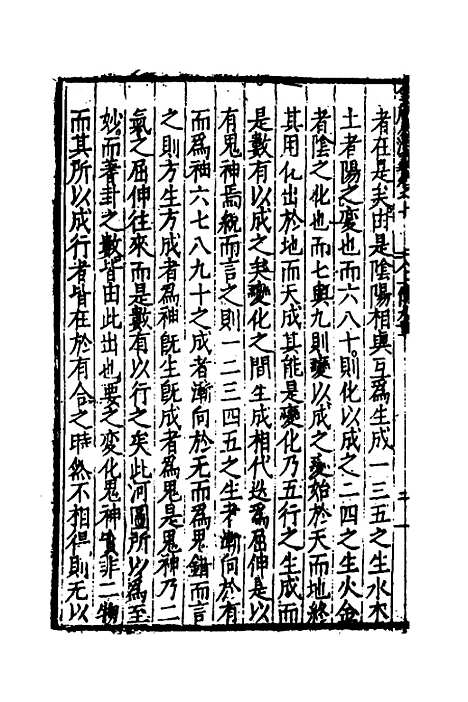 者在是矣由是陰陽相與互爲生成一三五之生水木
土者陽之變也而六八十則化以成之二四之生火金
者陰之化也而七與九則變以成之變始於天而地終
其用化出於地而天成其能是變化乃五行之生成而
是數有以成之矣變化之間生成相代迭爲屈伸是以
有鬼神焉統而言之則一二三四五之生者漸向於有
而爲神六七八九十之成者漸向於无而爲鬼錯而言
之則方生方成者爲神旣生旣成者爲鬼是鬼神乃二
氣之屈伸往來而是數有以行之矣此河圖所以爲至
妙而蓍卦之數皆由此出也要之變化鬼神實非二物
而其所以成行者皆在於有合之時然不相得則无以